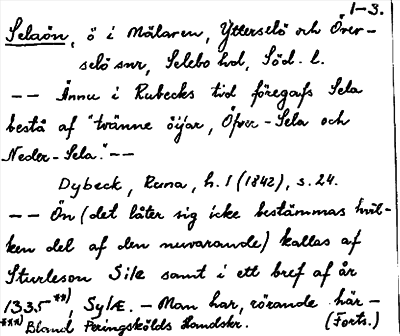 1-3.
Selaön, ö i Mälaren, Ytterselö och Över-
selö snr, Selebo hd, Söd. l.
-- Ännu i Rubecks tid föregafs Sela
bestå af "tvänne öijar, Öfver-Sela och
Neder-Sela." --
Dybeck, Runa, h. 1 (1842), s. 24.
-- Ön (det låter sig icke bestämmas hvil-
ken del af den nuvarande) kallas af
Sturleson Silæ samt i ett bref af år
1335 **), Sylæ. - Man har, rörande här-
***) Bland Peringskölds Handskr. (Forts.)